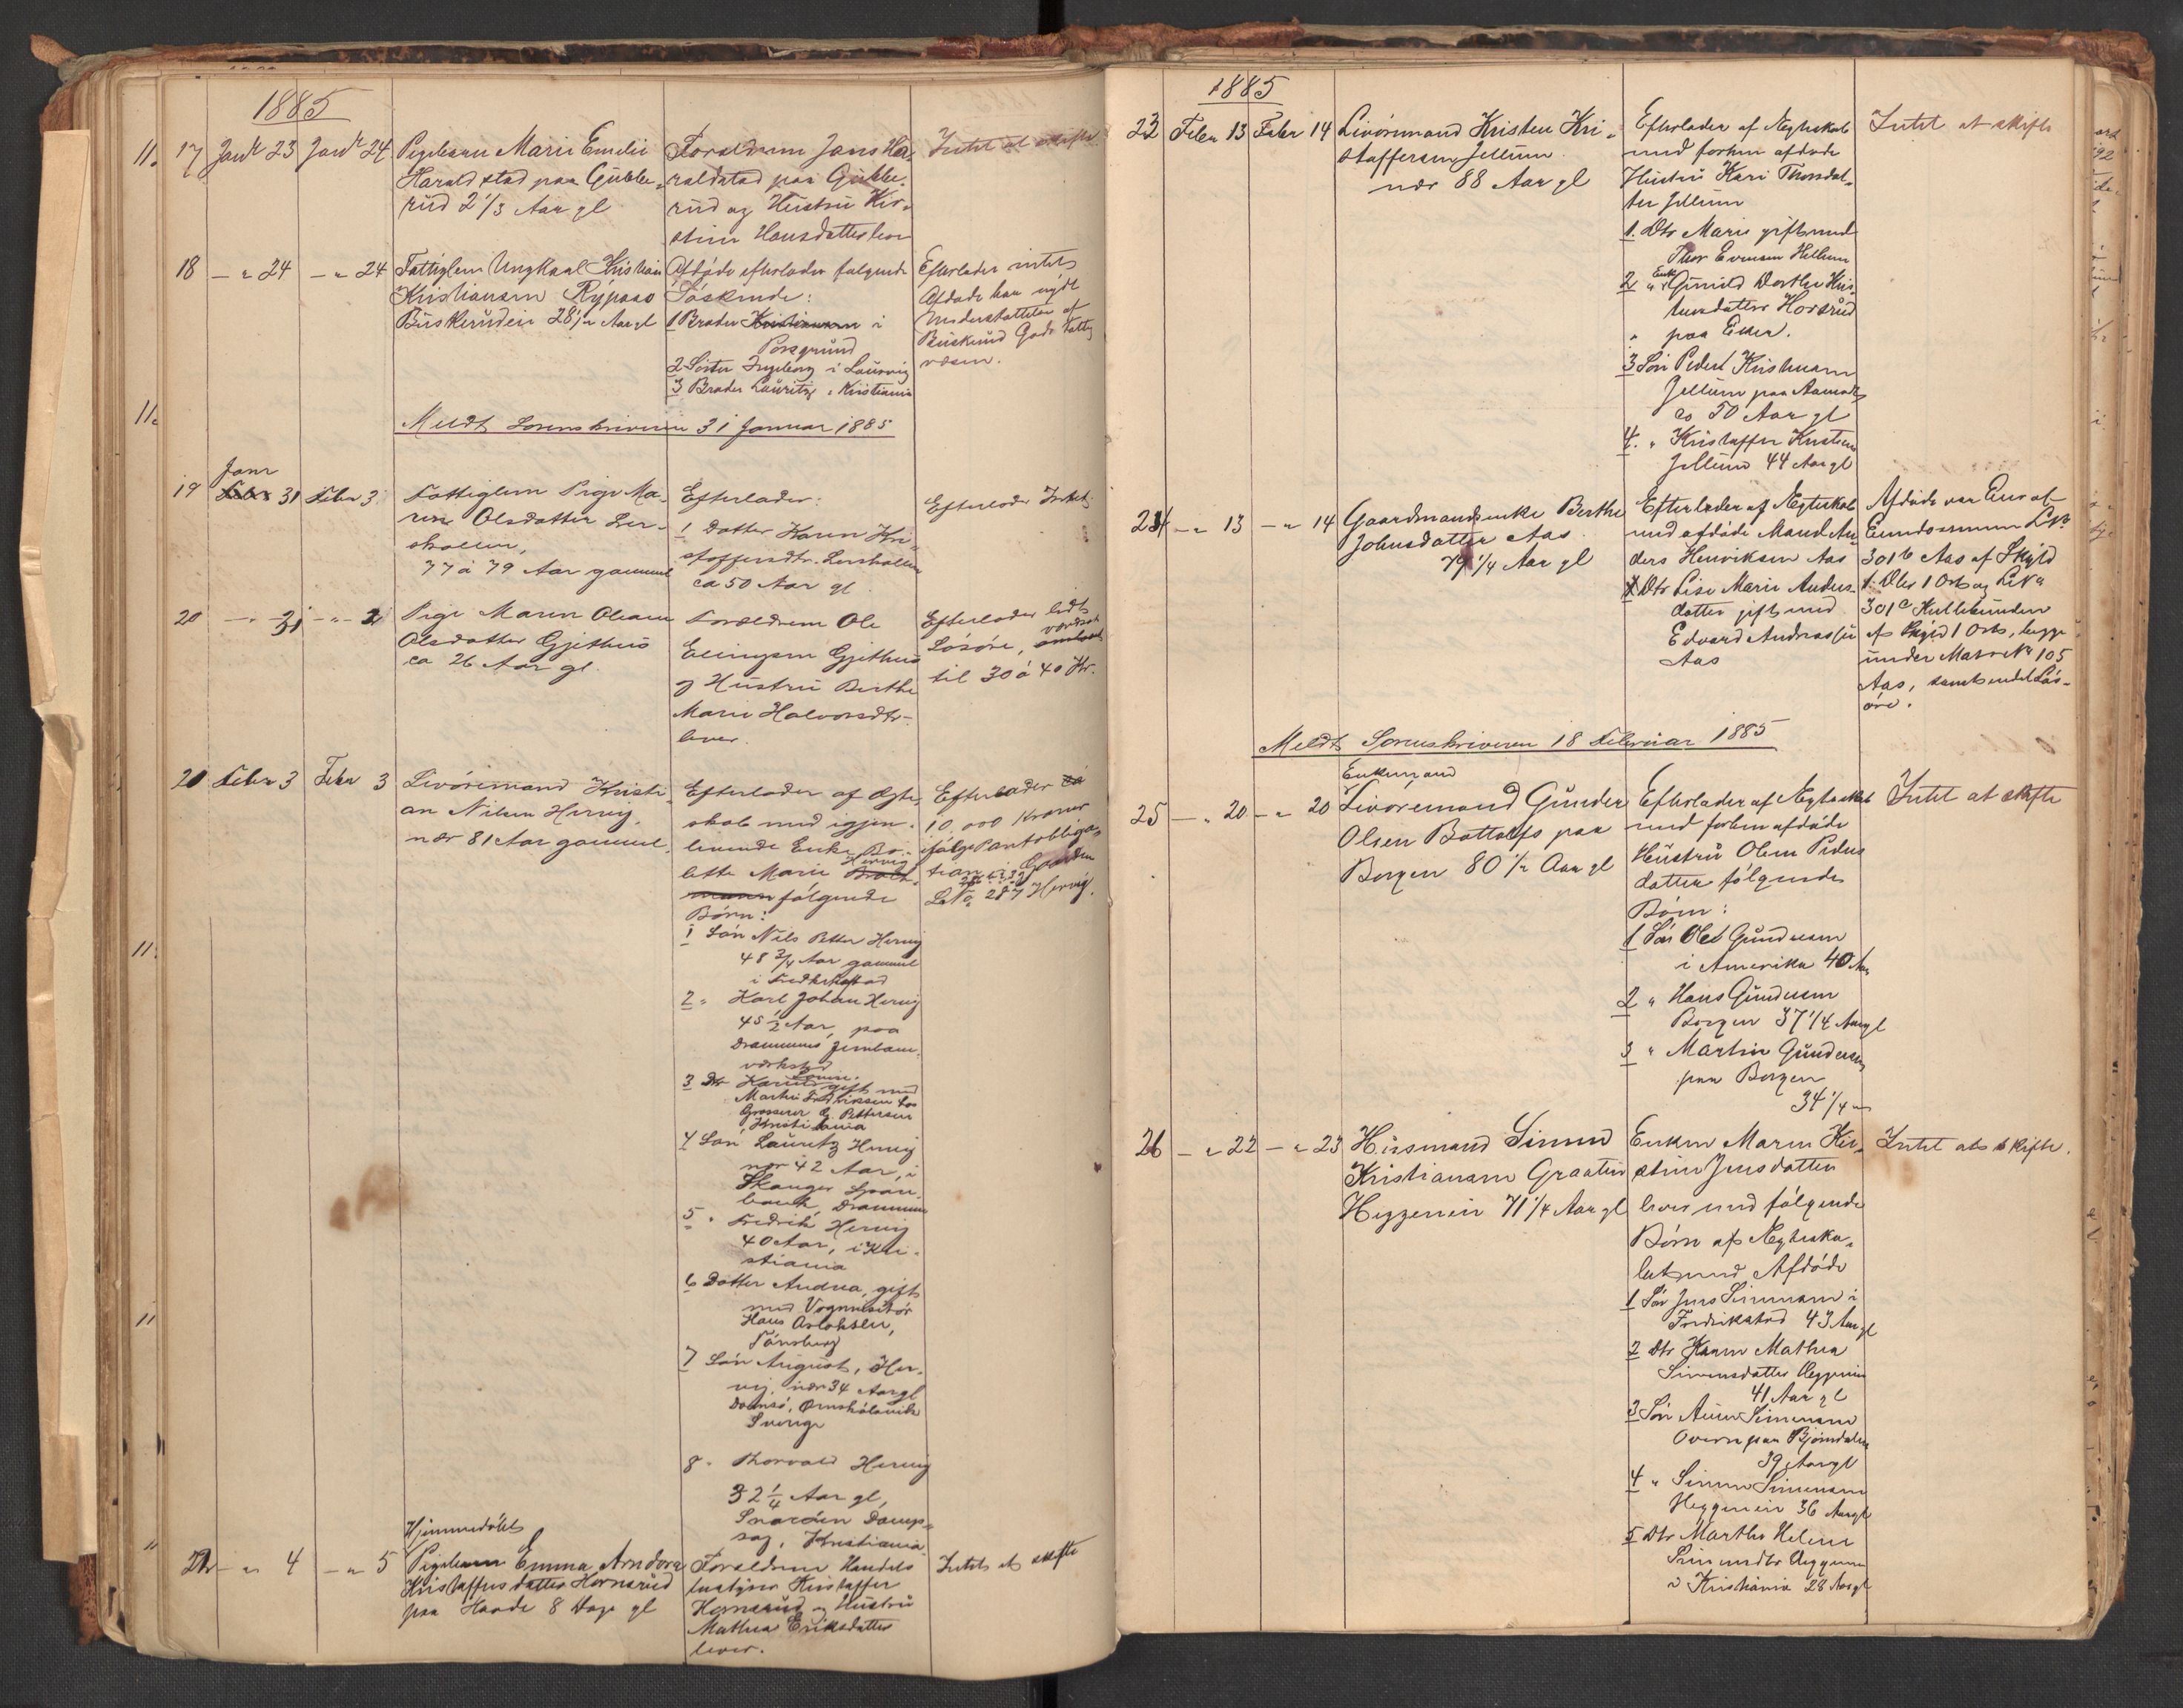 1885
11.
17 Janr 23 Janr 24
Pigebarn Marie Emilie
Haraldstad paa Gubbe-
rud 2 1/3 Aar gl
Forældrene Jens Ha-
raldstad paa Gubbe-
rud og Hustru Kir-
stine Hansdatter lever
Intet at skifte
18 — " 24 — " 24
Fattiglem Ungkarl Kristian
Kristiansen
28 1/2 Aar gl
Afdøde efterlader følgende
Søskende:
1 Broder Kristiansen i
Porsgrund
2 Søster Ingeborg i Laurvig
3 Broder Lauritz i Kristiania
Efterlader intet
Afdøde har nydt
Understøttelse af
Buskerud Gods Fattig
væsen.
11.
Meldt Sorenskriveren 31 Januar 1885
Janr
19 Febr 31 Febr 3
Fattiglem Pige Ma-
ren Olsdatter Ler-
skallen,
77 à 79 Aar gammel
Efterlader:
1 Datter Karen Kri-
stoffersdtr. Lerskallen
ca 50 Aar gl
Efterlader Intet
20 — " 31 — " 2
Pige Maren Oleane
Olsdatter Gjethus
ca 26 Aar gl.
Forældrene Ole
Ellingsen Gjethus
og Hustru Berthe
Marie Halvorsdtr
lever.
Efterlader lidt
Løsøre, værdsat
til 30 à 40 Kr.
21 Febr 3 Febr 3
Livøremand Kristi-
an Nilsen Hervig,
nær 81 Aar gammel.
Efterlader af Ægte-
skab med igjen-
levende Enke Bo-
lette Marie Hervig
følgende
Børn:
1 Søn Nils Petter Hervig
48 3/4 Aar gammel
i Fredrikstad
2 " Karl Johan Hervig
45 1/2 Aar, paa
Drammens Jernbane
værksted
3 Dtr Karen Lovise gift med
Martin Fredriksen hos
Grosserer G. Pettersen
Kristiania
4 Søn Lauritz Hervig
nær 42 Aar, i
Skoger Spare-
bank, Drammen
5 " Fredrik Hervig
40 Aar, i Kri-
stiania
6 Datter Andrea, gift
med Vognvisitør
Hans Aslaksen,
Tønsberg
7 Søn August, Her-
vig, nær 34 Aar gl
Domsø, Ørnskøldsvik
Sverige
8 " Thorvald Hervig
32 1/4 Aar gl,
Snarøen Damp-
sag, Kristiania
Efterlader
10,000 Kroner
ifølge Pantobliga-
tion i Gaarden
LNo 287 Hervig.
11.
11
11
Hjemmedøbt
22 — " 4 — " 5
Pigebarn Emma Arndora
Kristoffersdatter Hornsrud
paa Haade 8 Dage gl
Forældrene Handels
bestyrer Kristoffer
Hornsrud og Hustru
Mathea Eriksdatter
lever.
Intet at skifte
1885
23 Febr 13 Febr 14
Livøremand Kristen Kri-
stoffersen Jellum
nær 88 Aar gl
Efterlader af Ægteskab
med forhen afdøde
Hustru Kari Thorsdat-
ter Jellum
1. Dtr Marie gift med
Thor Evensen Hellum
2 " Enke Gunild Dorthe Kris-
tensdatter Horsrud
" paa Eker.
3 Søn Peder Kristensen
Jellum paa Aamodt
ca 50 Aar gl
4. " Kristoffer Kristensen
Jellum 44 Aar gl
Intet at skifte
24 — " 13 — " 14
Gaardmandsenke Berthe
Johnsdatter Aas
79 1/4 Aar gl
Efterlader af Ægteskab
med afdøde Mand An-
ders Henriksen Aas
1 Dtr Lise Marie Anders-
datter gift med
Edvard Andreassen
Aas
Afdøde var Eier af
Eiendommen LNo
301b Aas af Skyld
1 Dlr 1 Ort og LNo
301c Kullebunden
af Skyld 1 Ort, begge
under Matr No 105
Aas, samt endel Løs-
øre.
Meldt Sorenskriveren 18 Februar 1885
Enkemand
25 — " 20 — " 20
Livøremand Gunder
Olsen Bottolfs paa
Borgen 80 1/2 Aar gl
Efterlader af Ægteskab
med forhen afdøde
Hustru Olea Peders
datter følgende
Børn:
1 Søn Ole Gundersen
i Amerika 40 Aar
2 " Hans Gundersen
Borgen 37 1/4 Aar gl
3 " Martin Gundersen
paa Borgen
34 1/4 "
Intet at skifte
26 — " 22 — " 23
Husmand Simen
Kristiansen Graaten
Heggenein 71 1/4 Aar gl
Enken Maren Kir-
stine Jensdatter
lever med følgende
Børn af Ægteska-
bet med Afdøde
1 Søn Jens Simensen i
Fredrikstad 43 Aar gl
2 Dtr Karen Mathea
Simensdatter Heggenein
41 Aar gl
3 Søn Simensen
Overn paa Bjørndalen
39 Aar gl
4 " Simen Simensen
Heggenein 36 Aar gl
5 Dtr Marthe Helene
Simensdtr Heggenein
i Kristiania 28 Aar gl
Intet at skifte.